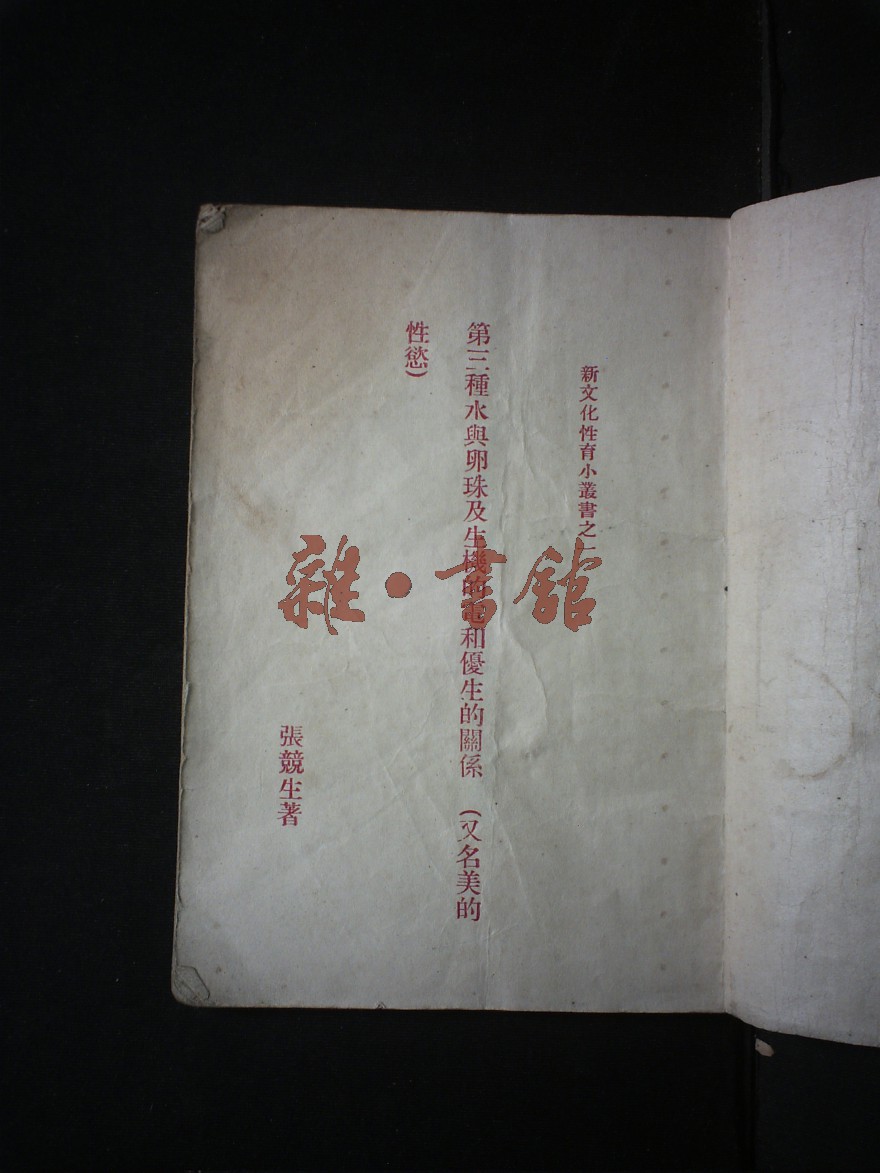 新文化性育小叢書之一
第三種水與卵珠及生機的電和優生的關係 (又名美的
性慾)
張競生著
雜·書館